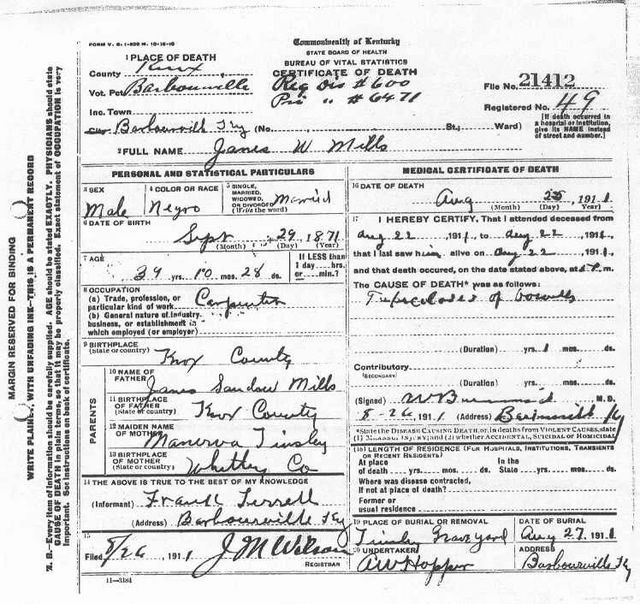 FORM V. S. 1-
Commonwealth of Kentucky
STATE BOARD OF HEALTH
BUREAU OF VITAL STATISTICS
CERTIFICATE OF DEATH
1 PLACE OF DEATH
County Knox
Vot. Pct Barbourville
Reg Dis # 600
Pri " # 6471
File No. 21412
Registered No. 49
[If death occurred in a hospital or institution, give its NAME instead of street and number.]
Inc. Town
City Barbourville Ky (No. St.; Ward)
2 FULL NAME James W Mills
PERSONAL AND STATISTICAL PARTICULARS
3 SEX Male
4 COLOR OR RACE Negro
5 SINGLE, MARRIED, WIDOWED, OR DIVORCED (Write the word) Married
6 DATE OF BIRTH
Sept 29, 1871
(Month) (Day) (Year)
7 AGE
39 yrs. 10 mos. 28 ds.
If LESS than 1 day... hrs. or... min.?
8 OCCUPATION
(a) Trade, profession, or particular kind of work Carpenter
(b) General nature of industry, business, or establishment in which employed (or employer)
9 BIRTHPLACE
(State or country) Knox County
PARENTS
10 NAME OF FATHER James Mills
11 BIRTHPLACE OF FATHER (State or country) Knox County
12 MAIDEN NAME OF MOTHER Manerva Tinsley
13 BIRTHPLACE OF MOTHER (State or country) Whitley Co
14 THE ABOVE IS TRUE TO THE BEST OF MY KNOWLEDGE
(Informant) Frank Terrell
(Address) Barbourville Ky
15
Filed 8/26, 1911 J M Wilson
REGISTRAR
11-3184
MEDICAL CERTIFICATE OF DEATH
16 DATE OF DEATH
Aug 25, 1911
(Month) (Day) (Year)
17 I HEREBY CERTIFY, That I attended deceased from
Aug 22, 1911, to Aug 22, 1911,
that I last saw him alive on Aug 22, 1911,
and that death occured, on the date stated above, at m.
The CAUSE OF DEATH* was as follows:
Tuberculosis of bowells
(Duration) yrs. 1 mos. ds.
Contributory
(SECONDARY)
(Duration) yrs. mos. ds.
(Signed) M.D.
8-26, 1911 (Address) Barbourville Ky
*State the DISEASE CAUSING DEATH, or, in deaths from VIOLENT CAUSES, state (1) MEANS OF INJURY; and (2) whether ACCIDENTAL, SUICIDAL or HOMICIDAL
18 LENGTH OF RESIDENCE (FOR HOSPITALS, INSTITUTIONS, TRANSIENTS OR RECENT RESIDENTS).
At place of death yrs. mos. ds. In the State yrs. mos. ds.
Where was disease contracted, if not at place of death?
Former or usual residence
19 PLACE OF BURIAL OR REMOVAL Tinsley Graveyard
DATE OF BURIAL Aug 27, 1911
20 UNDERTAKER AW Hopper
ADDRESS Barbourville Ky
MARGIN RESERVED FOR BINDING
WRITE PLAINLY, WITH UNFADING INK—THIS IS A PERMANENT RECORD
N. B.—Every item of information should be carefully supplied. AGE should be stated EXACTLY. PHYSICIANS should state
CAUSE OF DEATH in plain terms, so that it may be properly classified. Exact statement of OCCUPATION is very
important. See instructions on back of certificate.